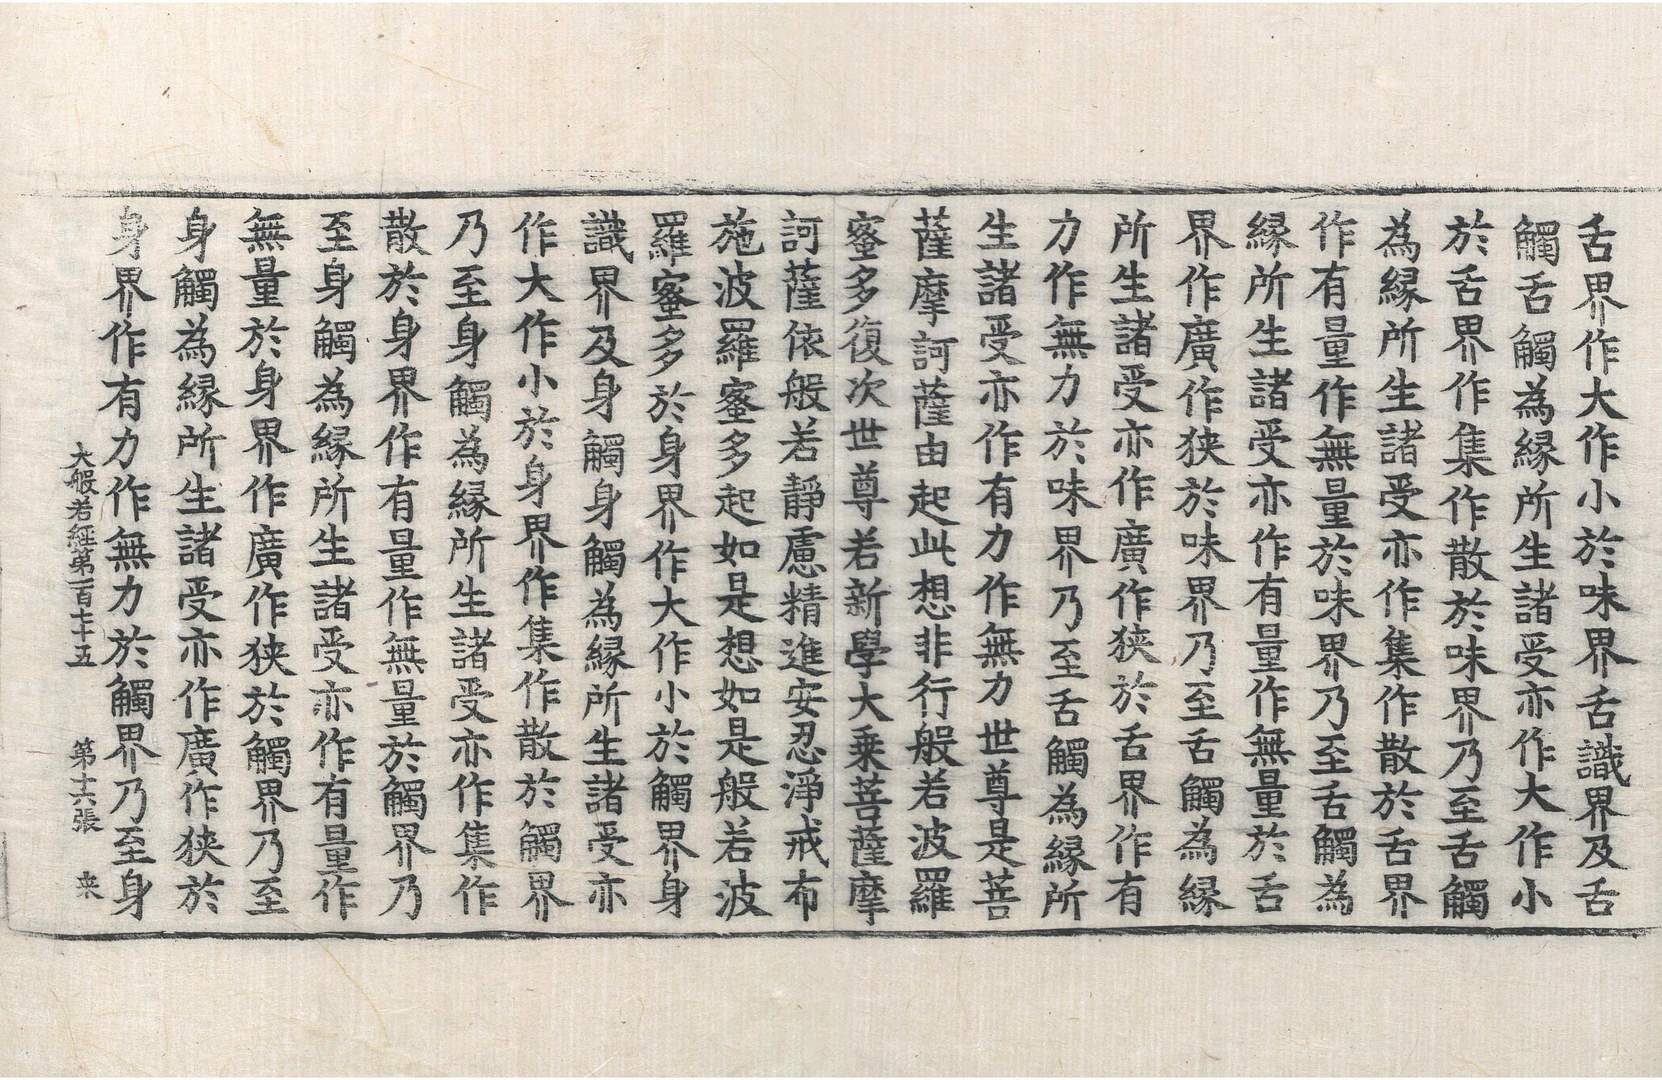 舌界作大作小於味界舌識界及舌
觸舌觸為緣所生諸受亦作大作小
於舌界作集作散於味界乃至舌觸
為緣所生諸受亦作集作散於舌界
作有量作無量於味界乃至舌觸為
緣所生諸受亦作有量作無量於舌
界作廣作狹於味界乃至舌觸為緣
所生諸受亦作廣作狹於舌界作有
力作無力於味界乃至舌觸為緣所
生諸受亦作有力作無力世尊是菩
薩摩訶薩由起此想非行般若波羅
蜜多復次世尊若新學大乘菩薩摩
訶薩依般若靜慮精進安忍淨戒布
施波羅蜜多起如是想如是般若波
羅蜜多於身界作大作小於觸界身
識界及身觸身觸為緣所生諸受亦
作大作小於身界作集作散於觸界
乃至身觸為緣所生諸受亦作集作
散於身界作有量作無量於觸界乃
至身觸為緣所生諸受亦作有量作
無量於身界作廣作狹於觸界乃至
身觸為緣所生諸受亦作廣作狹於
身界作有力作無力於觸界乃至身
大般若經第一百七十五 第十六張 來